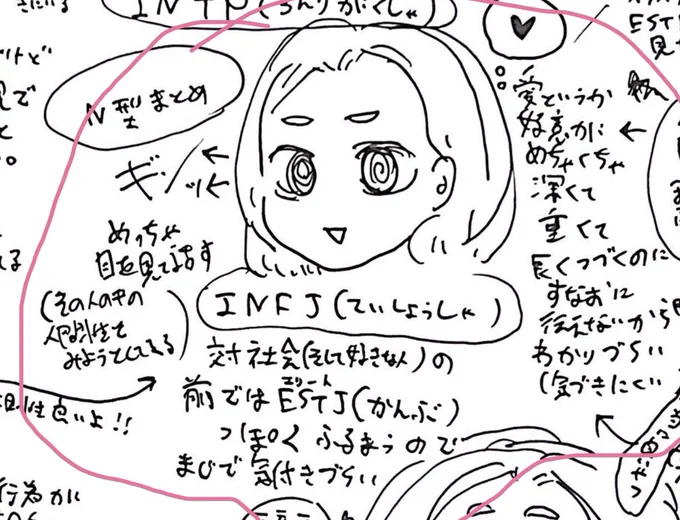 INTP(ろんりがくしゃ)
N型まとめ
ギンッ
めっちゃ
目を見て話す
(その人の中の
人間性を
みようとしてる)
相性良いよ!!
INFJ(ていしょうしゃ)
対社会(そして好きな人)の
前ではESTJ(かんぶ)
エリート
っぽくふるまうので
まじで気付きづらい
愛というか
好意が
めちゃくちゃ
深くて
重くて
長くつづくのに
すなおに
伝えないから
わかりづらい
(気づきにくい
行為が